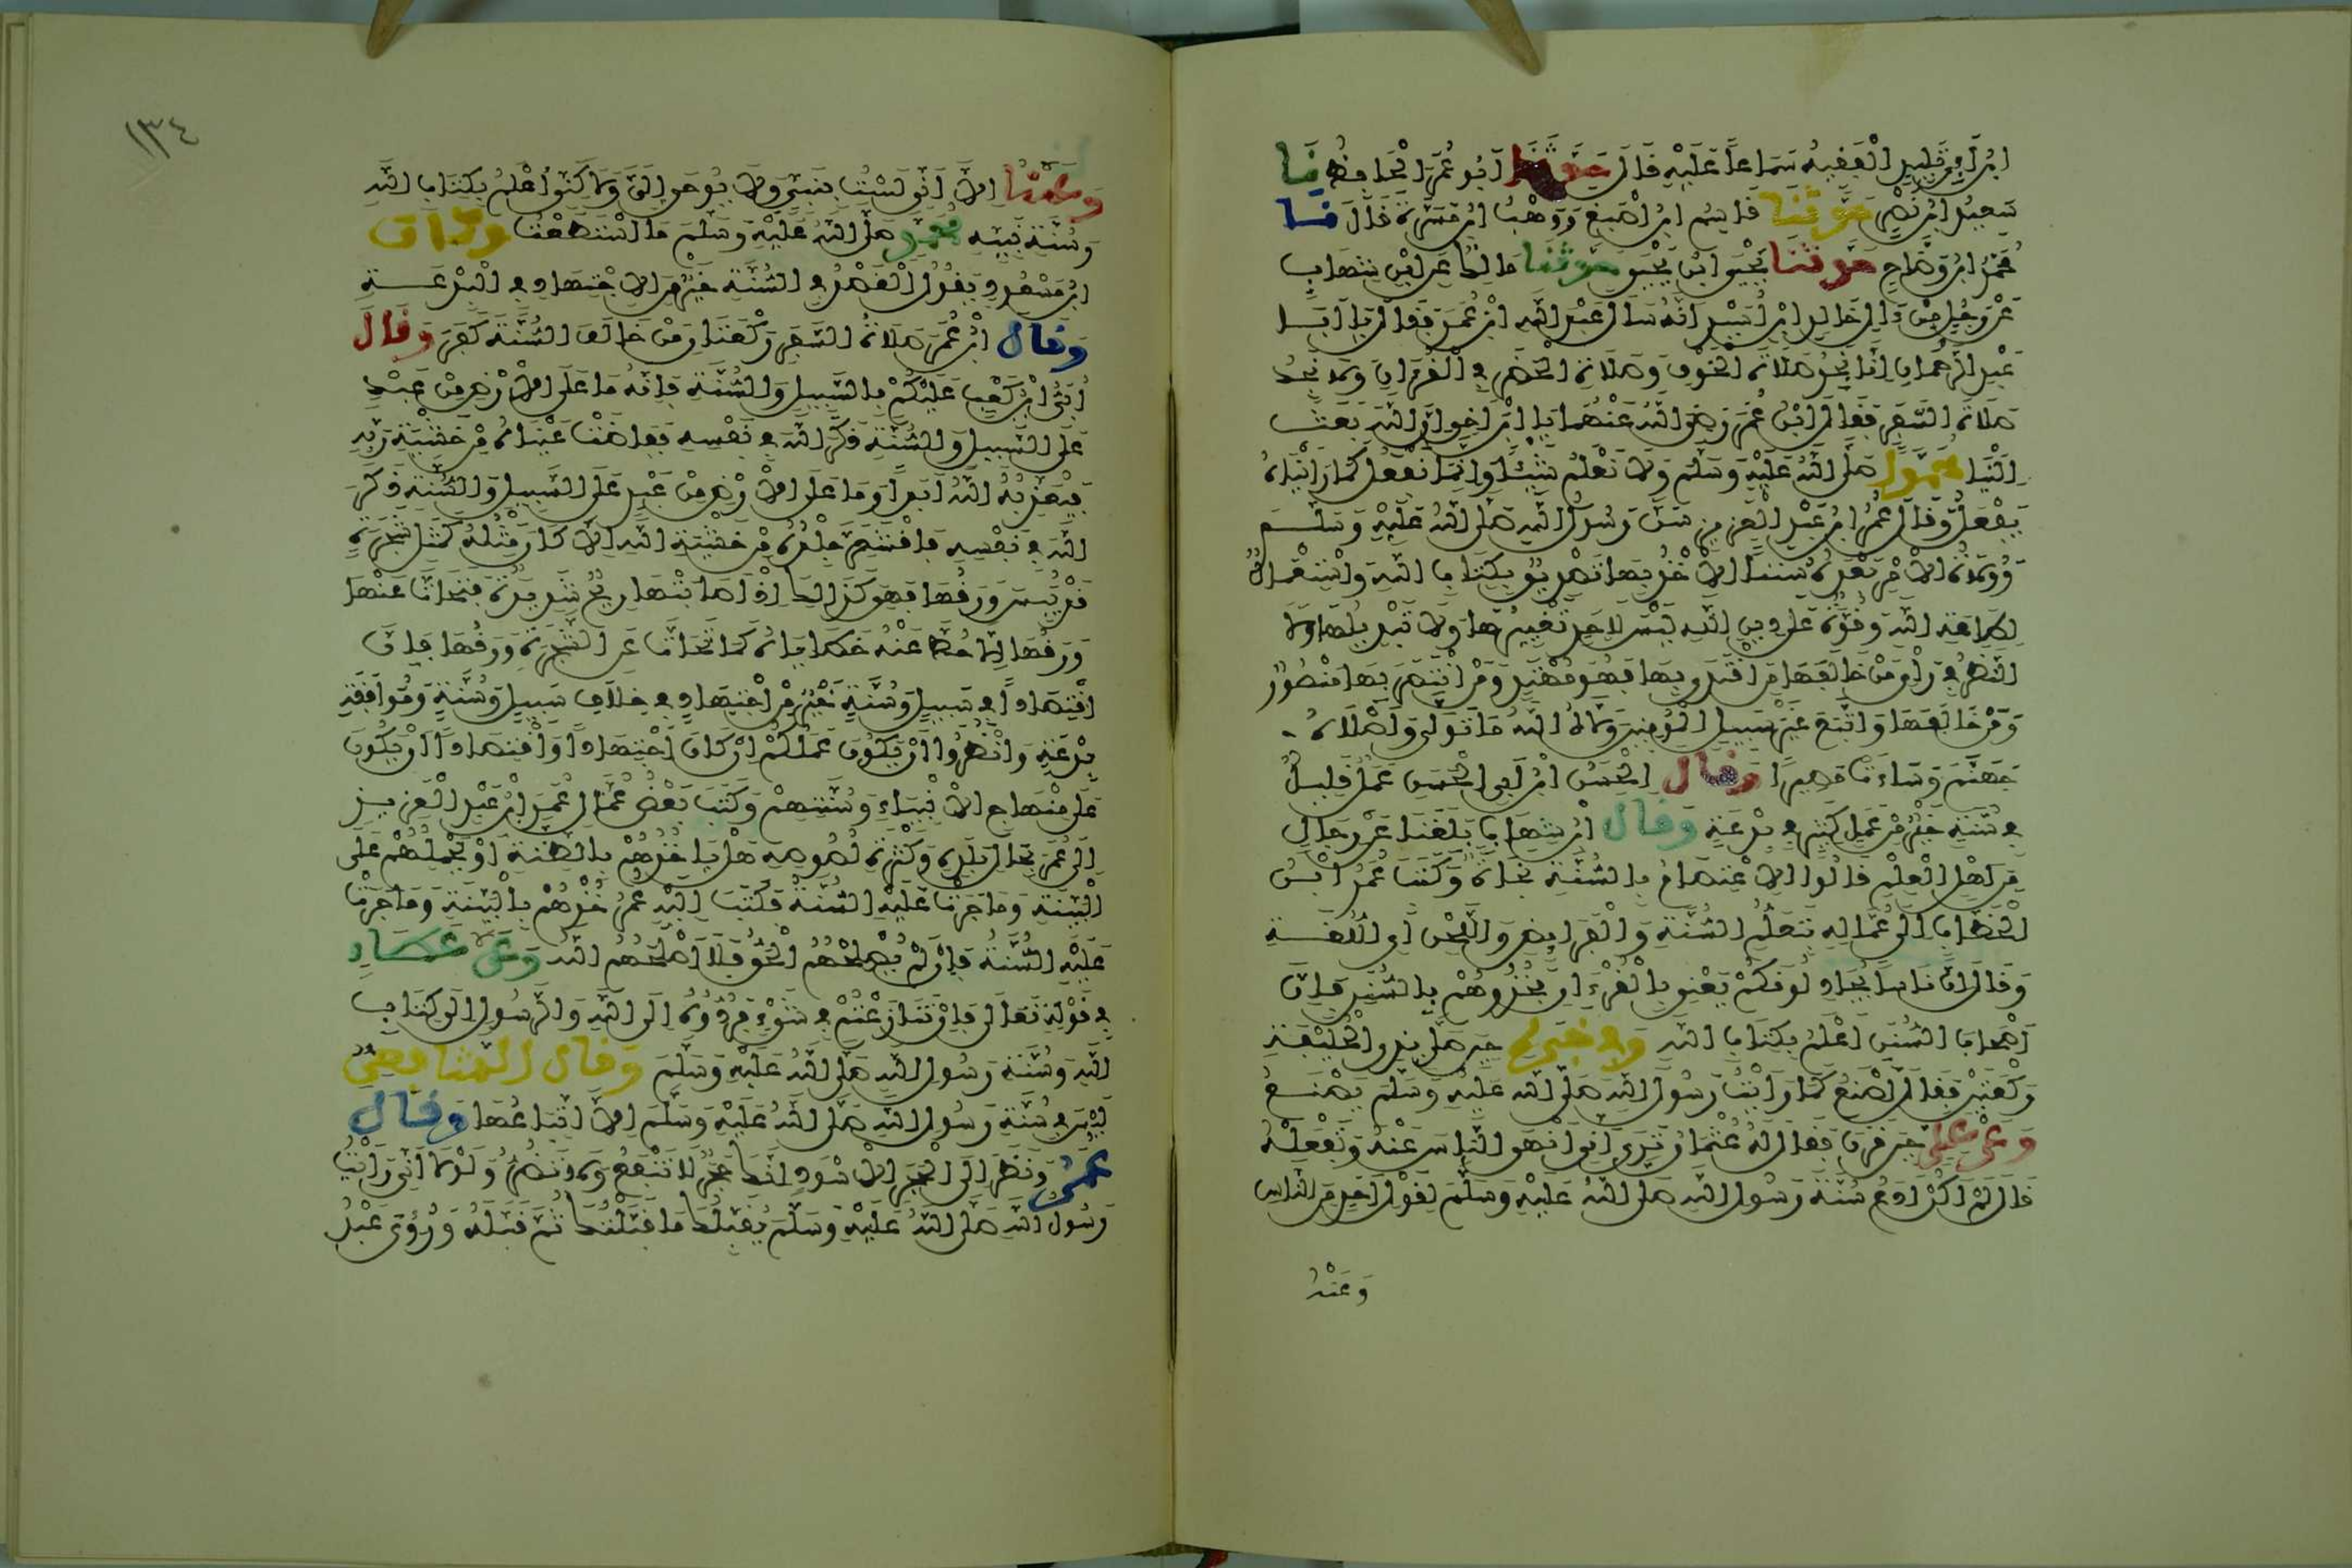 ابن أبي تليد الفقيه سماعا عليه قال حدثنا أبو عمر الحافظ نا
سعيد ابن نصر حدثنا قاسم ابن أصبغ ووهب ابن مسرة قال نا
محمد ابن وضاح حدثنا يحيى ابن يحيى حدثنا مالك عن ابن شهاب
عن رجل من ءال خالد ابن أسيد أنه سأل عبد الله ابن عمر فقال يا أبا
عبد الرحمان إنا نجد صلاة الخوف وصلاة الحضر في القرءان ولا نجد
صلاة السفر فقال ابن عمر رضي الله عنهما يا ابن أخي إن الله بعث
إلينا محمدا صلى الله عليه وسلم ولا نعلم شيئا وإنما نفعل كما رأيناه
يفعل وقال عمر ابن عبد العزيز سن رسول الله صلى الله عليه وسلم
وولاة الأمر بعده سننا الأخذ بها تصديق بكتاب الله واستعمال
لطاعة الله وقوة على دين الله ليس لأحد تغييرها ولا تبديلها ولا
النظر في رأي من خالفها من اقتدى بها فهو مهتد ومن انتصر بها منصور
ومن خالفها واتبع غير سبيل المؤمنين ولاه الله ما تولى وأصلاه
جهنم وساءت مصيرا وقال الحسن ابن أبي الحسن عمل قليل
في سنة خير من عمل كثير في بدعة وقال ابن شهاب بلغنا عن رجال
من أهل العلم قالوا الاعتصام بالسنة نجاة وكتب عمر ابن
الخطاب إلى عماله بتعلم السنة والفرائض واللحن أي اللغة
وقال إن ناسا يجادلونكم يعني بالقرءان فخذوهم بالسنن فإن
أصحاب السنن أعلم بكتاب الله وفي خبره حين صلى بذي الحليفة
ركعتين فقال أصنع كما رأيت رسول الله صلى الله عليه وسلم يصنع
وعن علي حين قرن فقال له عثمان ترى أني أنهى الناس عنه وتفعله
قال لم أكن أدع سنة رسول الله صلى الله عليه وسلم لقول أحد من الناس
وعنه
١٣٤
وعنه إلا أني لست بنبي ولا يوحى إلي ولاكني أعمل بكتاب الله
وسنة نبيه محمد صلى الله عليه وسلم ما استطعت وكان
ابن مسعود يقول القصد في السنة خير من الاجتهاد في البدعة
وقال ابن عمر صلاة السفر ركعتان من خالف السنة كفر وقال
أبي ابن كعب عليكم بالسبيل والسنة فإنه ما على الأرض من عبد
على السبيل والسنة ذكر الله في نفسه ففاضت عيناه من خشية ربه
فيعذبه الله أبدا وما على الأرض من عبد على السبيل والسنة ذكر
الله في نفسه فاقشعر جلده من خشية الله إلا كان مثله كمثل شجرة
قد يبس ورقها فهو كذلك إذ أصابتها ريح شديدة فتحات عنها
ورقها إلا حط عنه خطاياه كما تحات عن الشجرة ورقها فإن
اقتصادا في سبيل وسنة خير من اجتهاد في خلاف سبيل وسنة وموافقة
بدعة وانظروا أن يكون عملكم إن كان اجتهادا أو اقتصادا أن يكون
على منهاج الأنبياء وسنتهم وكتب بعض عمال عمر ابن عبد العزيز
إلى عمر بحال بلده وكثرة لصوصه هل يأخذهم بالظنة أو يحملهم على
البينة وما جرت عليه السنة فكتب إليه عمر خذهم بالبينة وما جرت
عليه السنة فإن لم يصلحهم الحق فلا أصلحهم الله وعن عطاء
في قوله تعالى فإن تنازعتم في شيء فردوه إلى الله والرسول إلى كتاب
الله وسنة رسول الله صلى الله عليه وسلم وقال الشافعي
ليس في سنة رسول الله صلى الله عليه وسلم إلا اتباعها وقال
عمر ونظر إلى الحجر الأسود إنك حجر لا تنفع ولا تضر ولولا أني رأيت
رسول الله صلى الله عليه وسلم يقبلك ما قبلتك ثم قبله ورؤي عبد